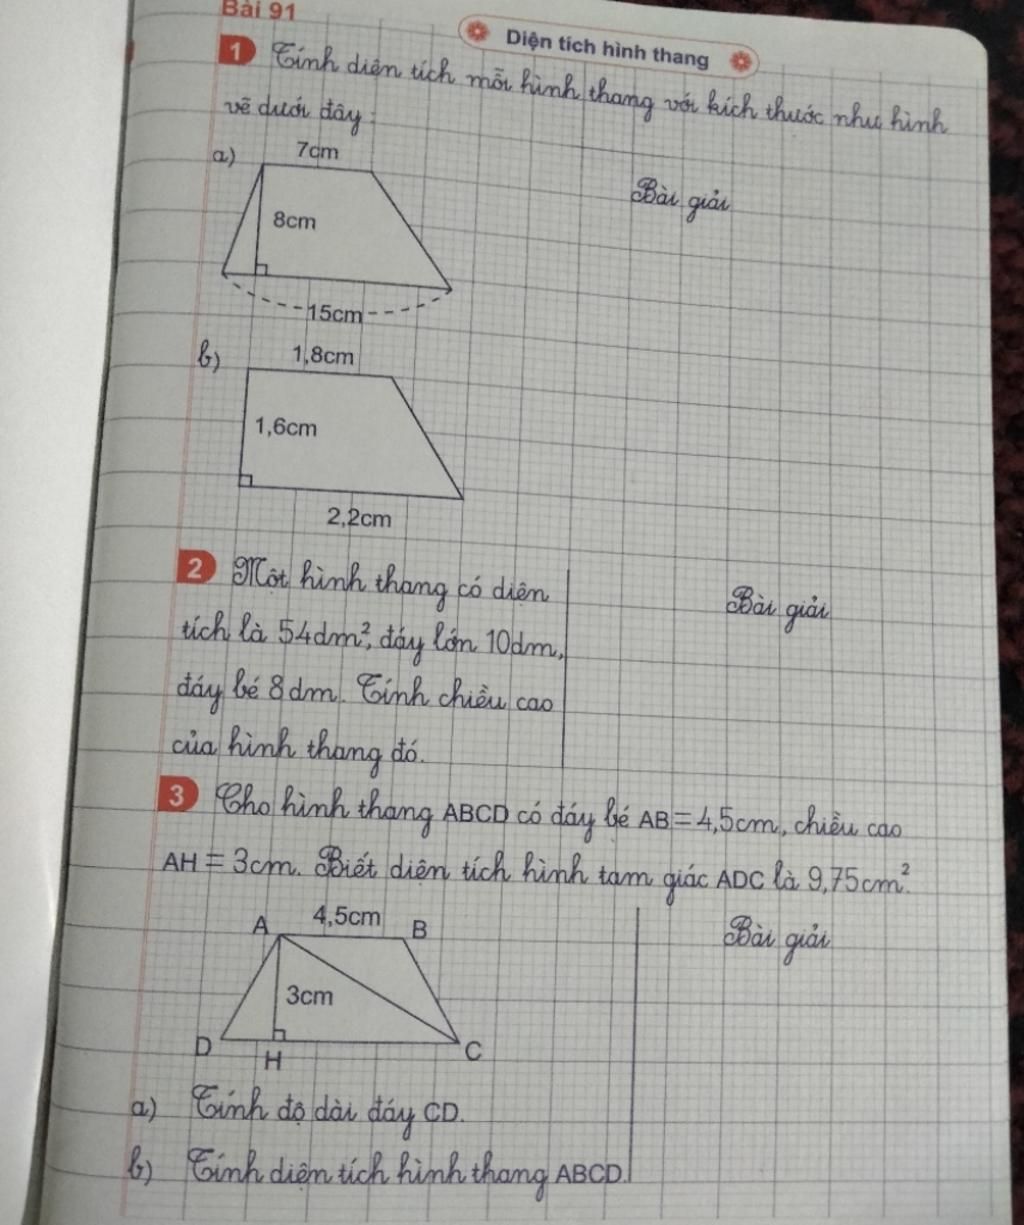 Bài 91
Diện tích hình thang
1 Tính diện tích mỗi hình thang với kích thước như hình
vẽ dưới đây:
a) 7cm
Bài giải
8cm
15cm
b) 1,8cm
1,6cm
2,2cm
2 Một hình thang có diện
tích là 54dm², đáy lớn 10dm,
đáy bé 8dm. Tính chiều cao
của hình thang đó.
Bài giải
3 Cho hình thang ABCD có đáy bé AB = 4,5cm, chiều cao
AH = 3cm. Biết diện tích hình tam giác ADC là 9,75cm².
A 4,5cm B
Bài giải
3cm
D H C
a) Tính độ dài đáy CD.
b) Tính diện tích hình thang ABCD.